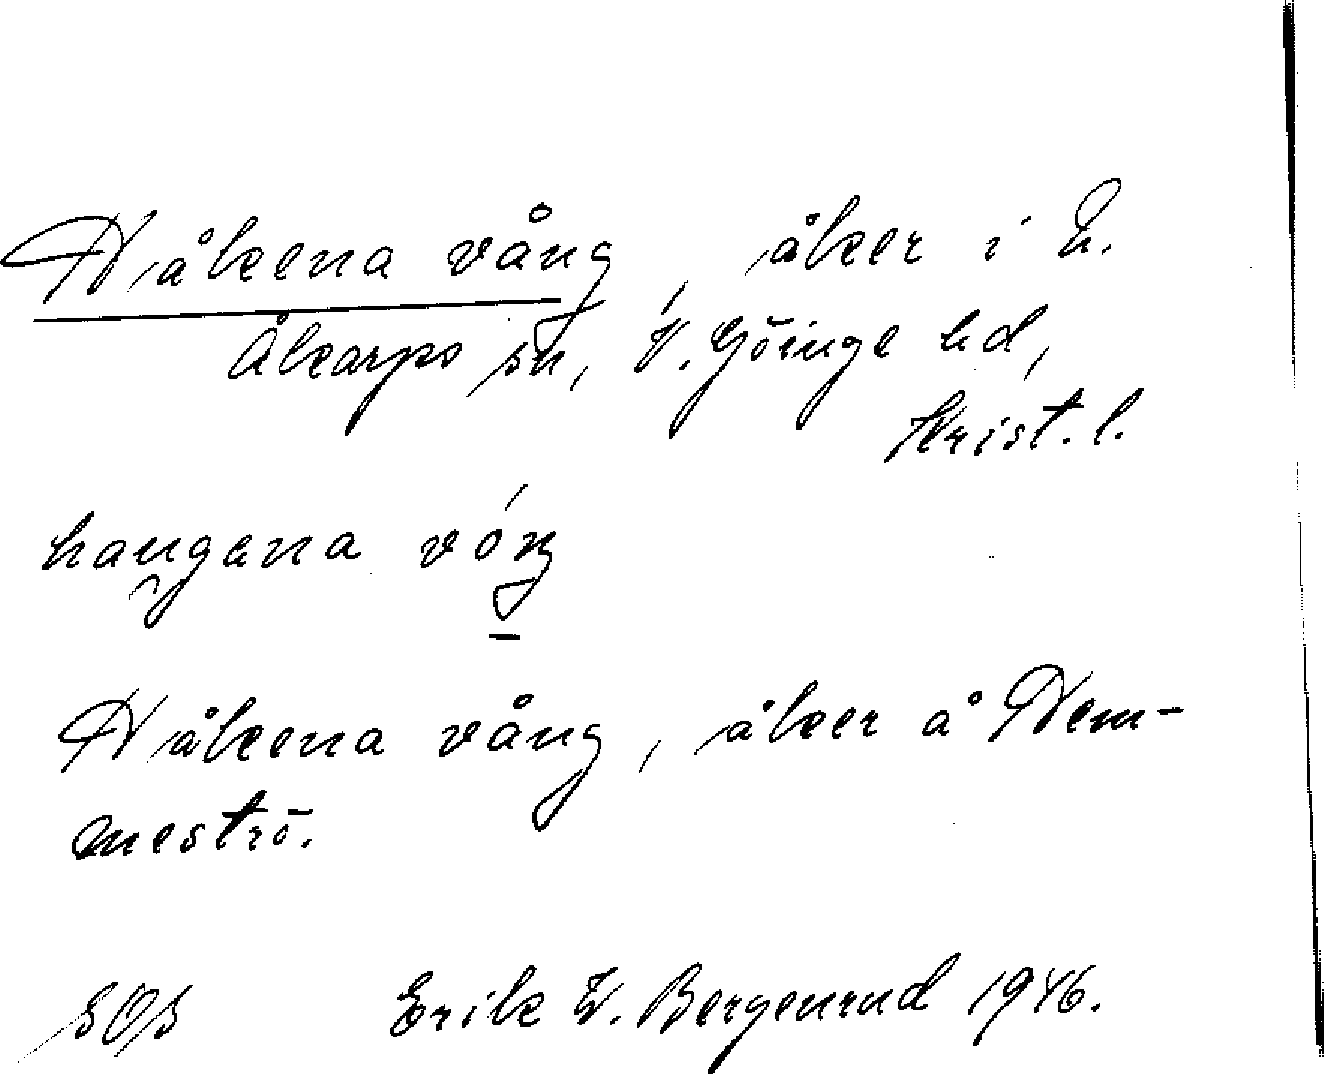 Håkena vång, åker i N.
Åkarps sn, V. Göinge hd,
Krist. l.
haugena vóŋ
Håkena vång, åker å Hem-
meströ.
SOS Erik W. Bergenrud 1946.